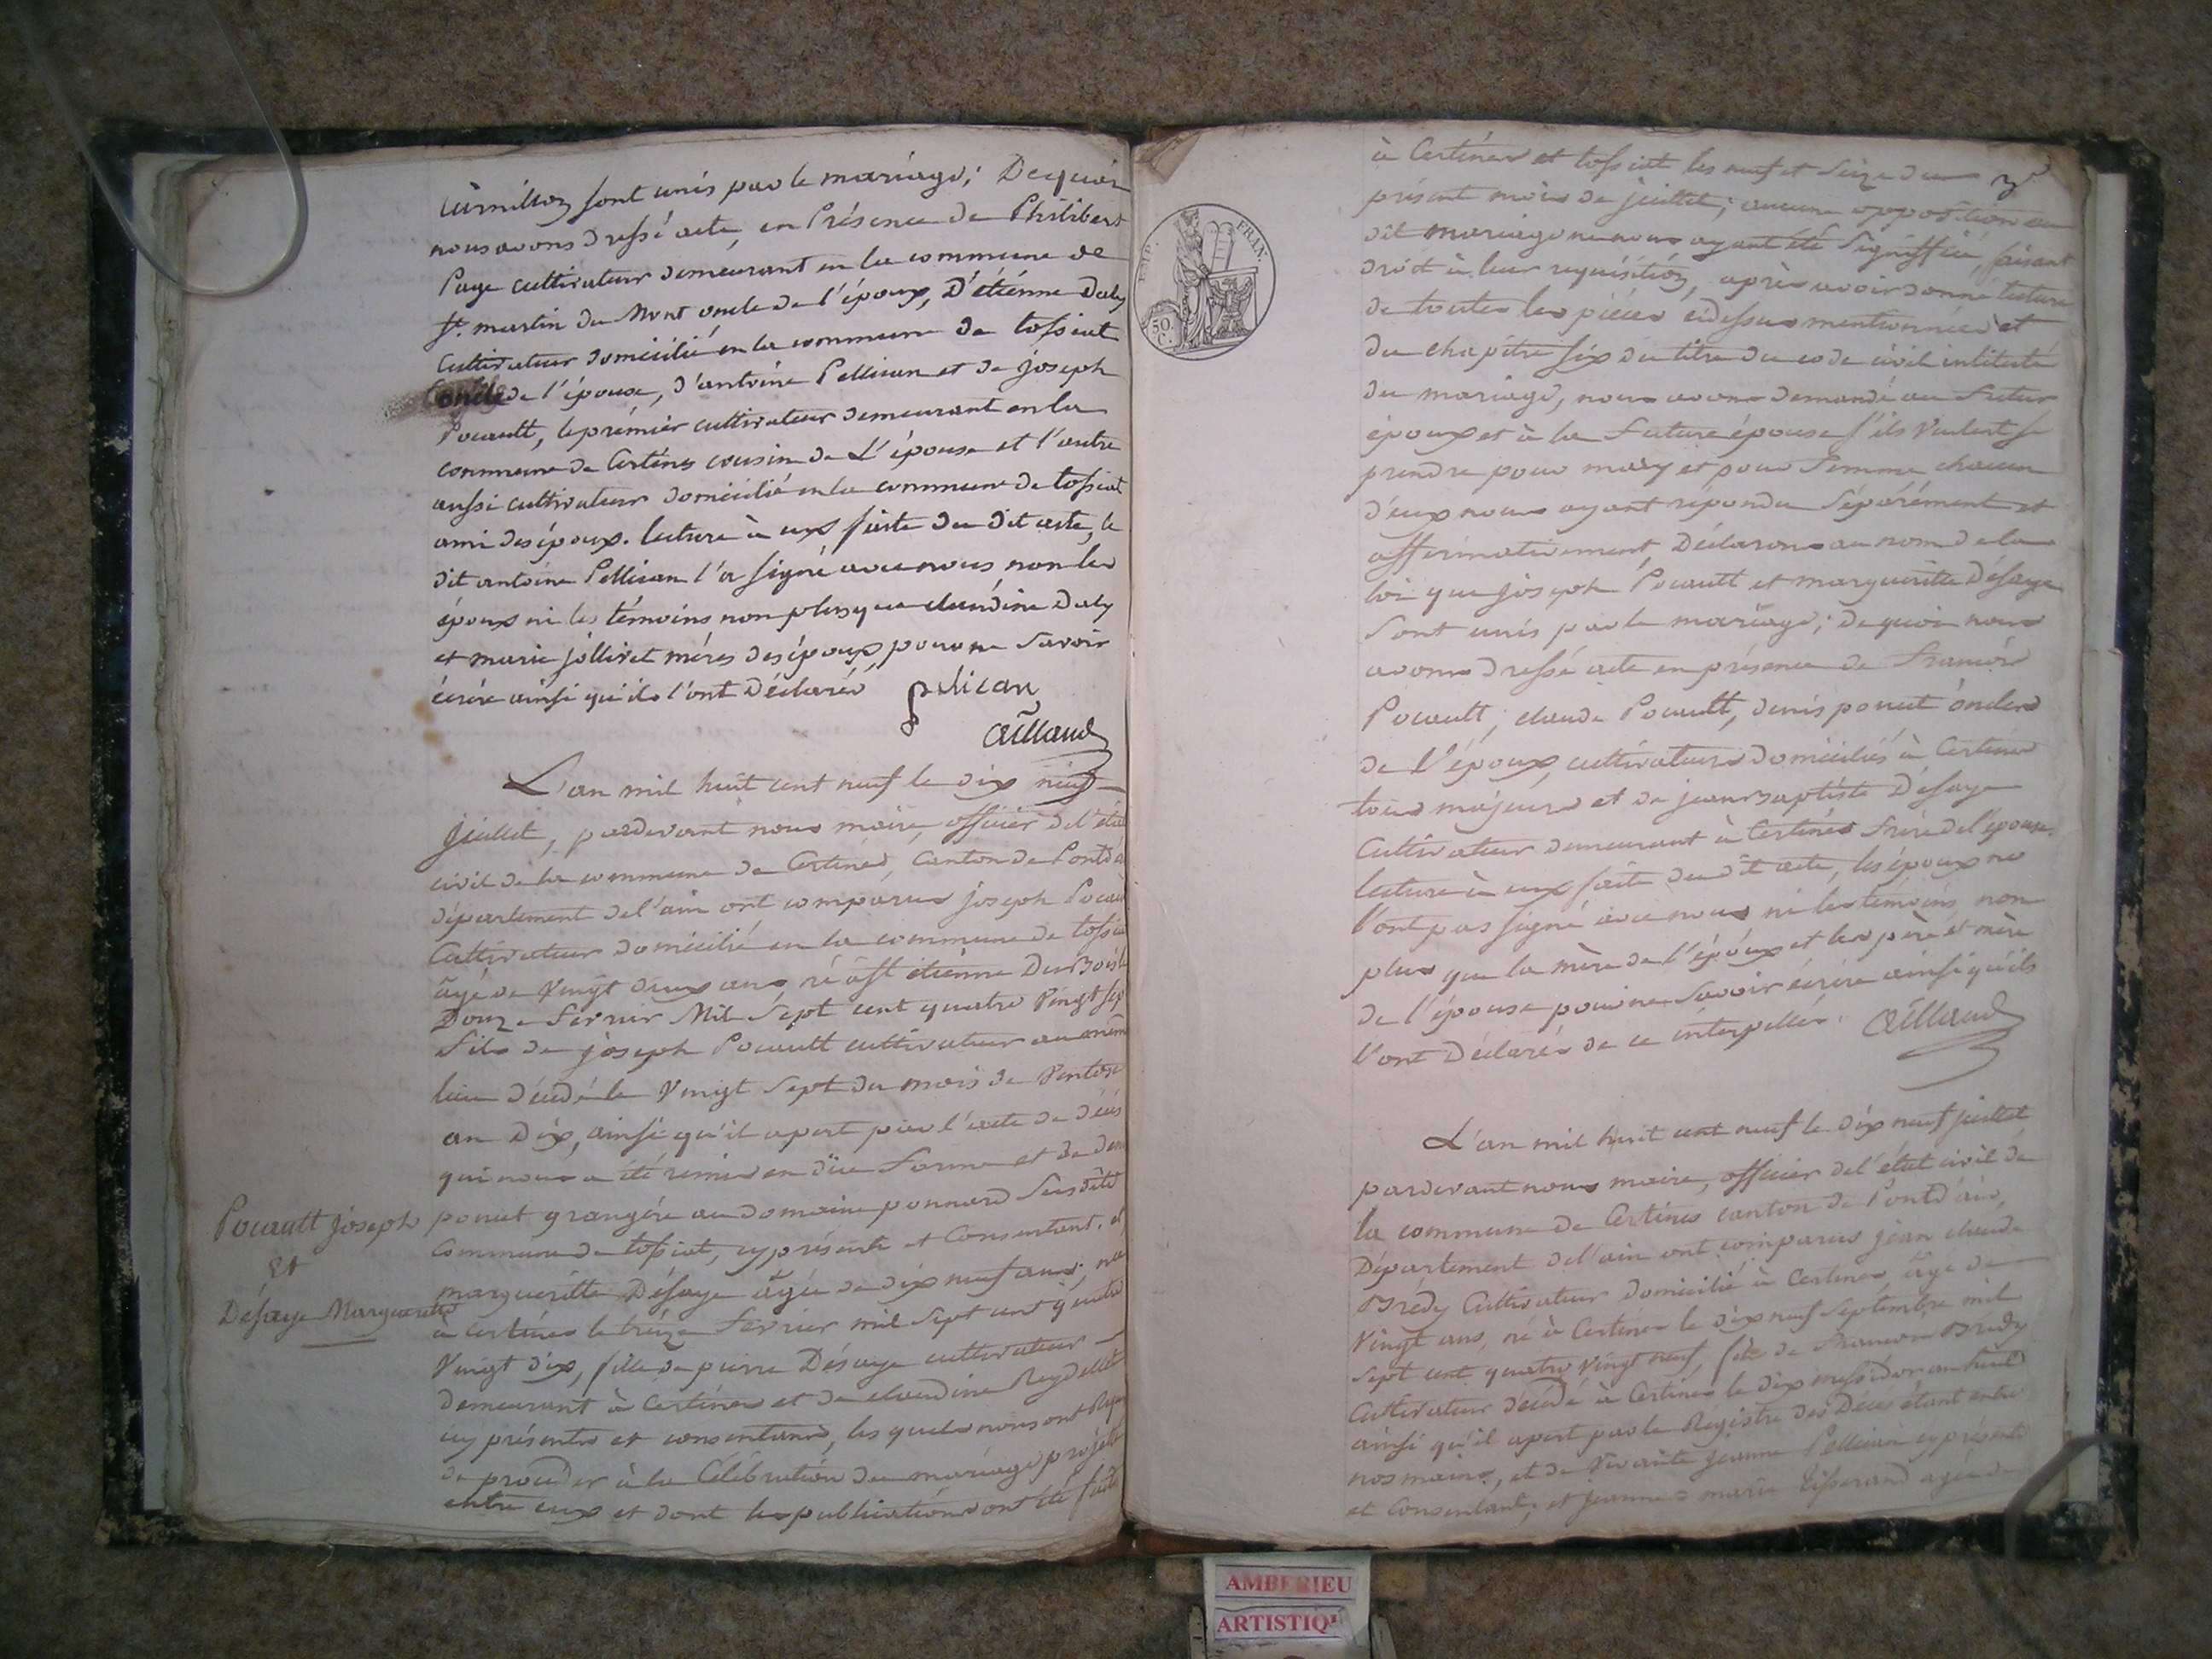 Curnillon sont unis par le mariage; Dequoi
nous avons dressé acte, en Présence de Philibert
Page cultivateur demeurant en la commune de
St. martin du Mont oncle de l'époux, D'étiénne Daly
Cultivateur domicilié en la commune de tossiat
oncle de l'épouse, d'antoine Pellican et de joseph
Pocault, le prémiér cultivateur demeurant en la
commune de Certines cousin de L'épouse et l'autre
aussi cultivateur domicilié en la commune de tossiat
ami des époux. lecture à eux faite du dit acte, le
dit antoine Pellican l'a signé avec nous non les
époux ni les témoins non plus que claudine Daly
et marie jollivet méres des époux, pour ne savoir
écrire ainsi qu'ils l'ont Déclarés pelican
Caillaud
L'an mil huit cent neuf le dix neuf
juillet, pardevant nous maire, officier de l'état
civil de la commune de Certines, Canton de Pont d'
département de l'ain ont comparus joseph Pocault
Cultivateur domicilié en la commune de tossiat
âgé de Vingt deux ans, né à St etiénne Du Bois le
Douze Fevrier Mil Sept cent quatre Vingt sept
fils de joseph Pocault cultivateur au même
lieu décédé le Vingt Sept du mois de Ventose
an Dix, ainsi qu'il apert par l'acte de décés
qui nous a été remis en düe Forme et de
ponut grangére au domaine ponnard Susdite
Commune de tossiat, cy présente et Consentant. et
Pocault joseph
et
Désaye Marguerite
marguéritte Désaye âgée de dix neuf ans, née
à Certines le treize Fevrier mil Sept cent quatre
Vingt dix, fille de pierre Désaye cultivateur
demeurant à Certines et de claudine Reydellet
cy présents et consentans, les quels nous ont Requis
de proceder à la Célébration du mariage projeté
entre eux et dont les publications ont été faites
EMP. FRAN.
50 C.
à Certines et tossiat les neuf et Seize du
présent mois de juillet; aucune opposition au
dit mariage ne nous ayant été Signiffiée, faisant
droit à leur requisition, aprés avoir donné lecture
de toutes les piéces cidessus mentionnées et
du chapitre six du titre du code civil intitulé
du mariage, nous avons demandé au Futur
époux et à la Future épouse s'ils Veulent se
prendre pour mary et pour Femme chacun
d'eux nous ayant répondu Séparément et
affirmativement, Déclarons au nom de la
loi que joseph Pocault et marguéritte Désaye
Sont unis par le mariage; de quoi nous
avons dressé acte en présence de Francois
Pocault, claude Pocault, denis ponut oncles
de l'époux, cultivateurs domiciliés à Certines
tous majeurs et de jean Baptiste Désaye
Cultivateur demeurant à Certines frére de l'épouse.
lecture à eux faite du dit acte, les époux ne
l'ont pas signé avec nous ni les témoins non
plus que la mére de l'époux et les pére et mére
de l'épouse pour ne Savoir écrire ainsi qu'ils
l'ont Déclarés de ce interpellés. Caillaud
L'an mil huit cent neuf le dix neuf juillet
pardevant nous maire, officier de l'état civil de
la commune de Certines canton de Pont d'ain,
Département de l'ain ont comparus jean claude
Brédy Cultivateur domicilié à Certines, âgé de
Vingt ans, né à Certines le dix neuf Septembre mil
Sept cent quatre Vingt neuf, fils de Francois Brédy
Cultivateur décédé à Certines le dix messidor an huit
ainsi qu'il apert par le Régistre des Décés étant entre
nos mains, et de Vivante jeanne Pellican cy présente
et Consentant; et jeanne marie tisserand agée de
AMBERIEU
ARTISTIQU